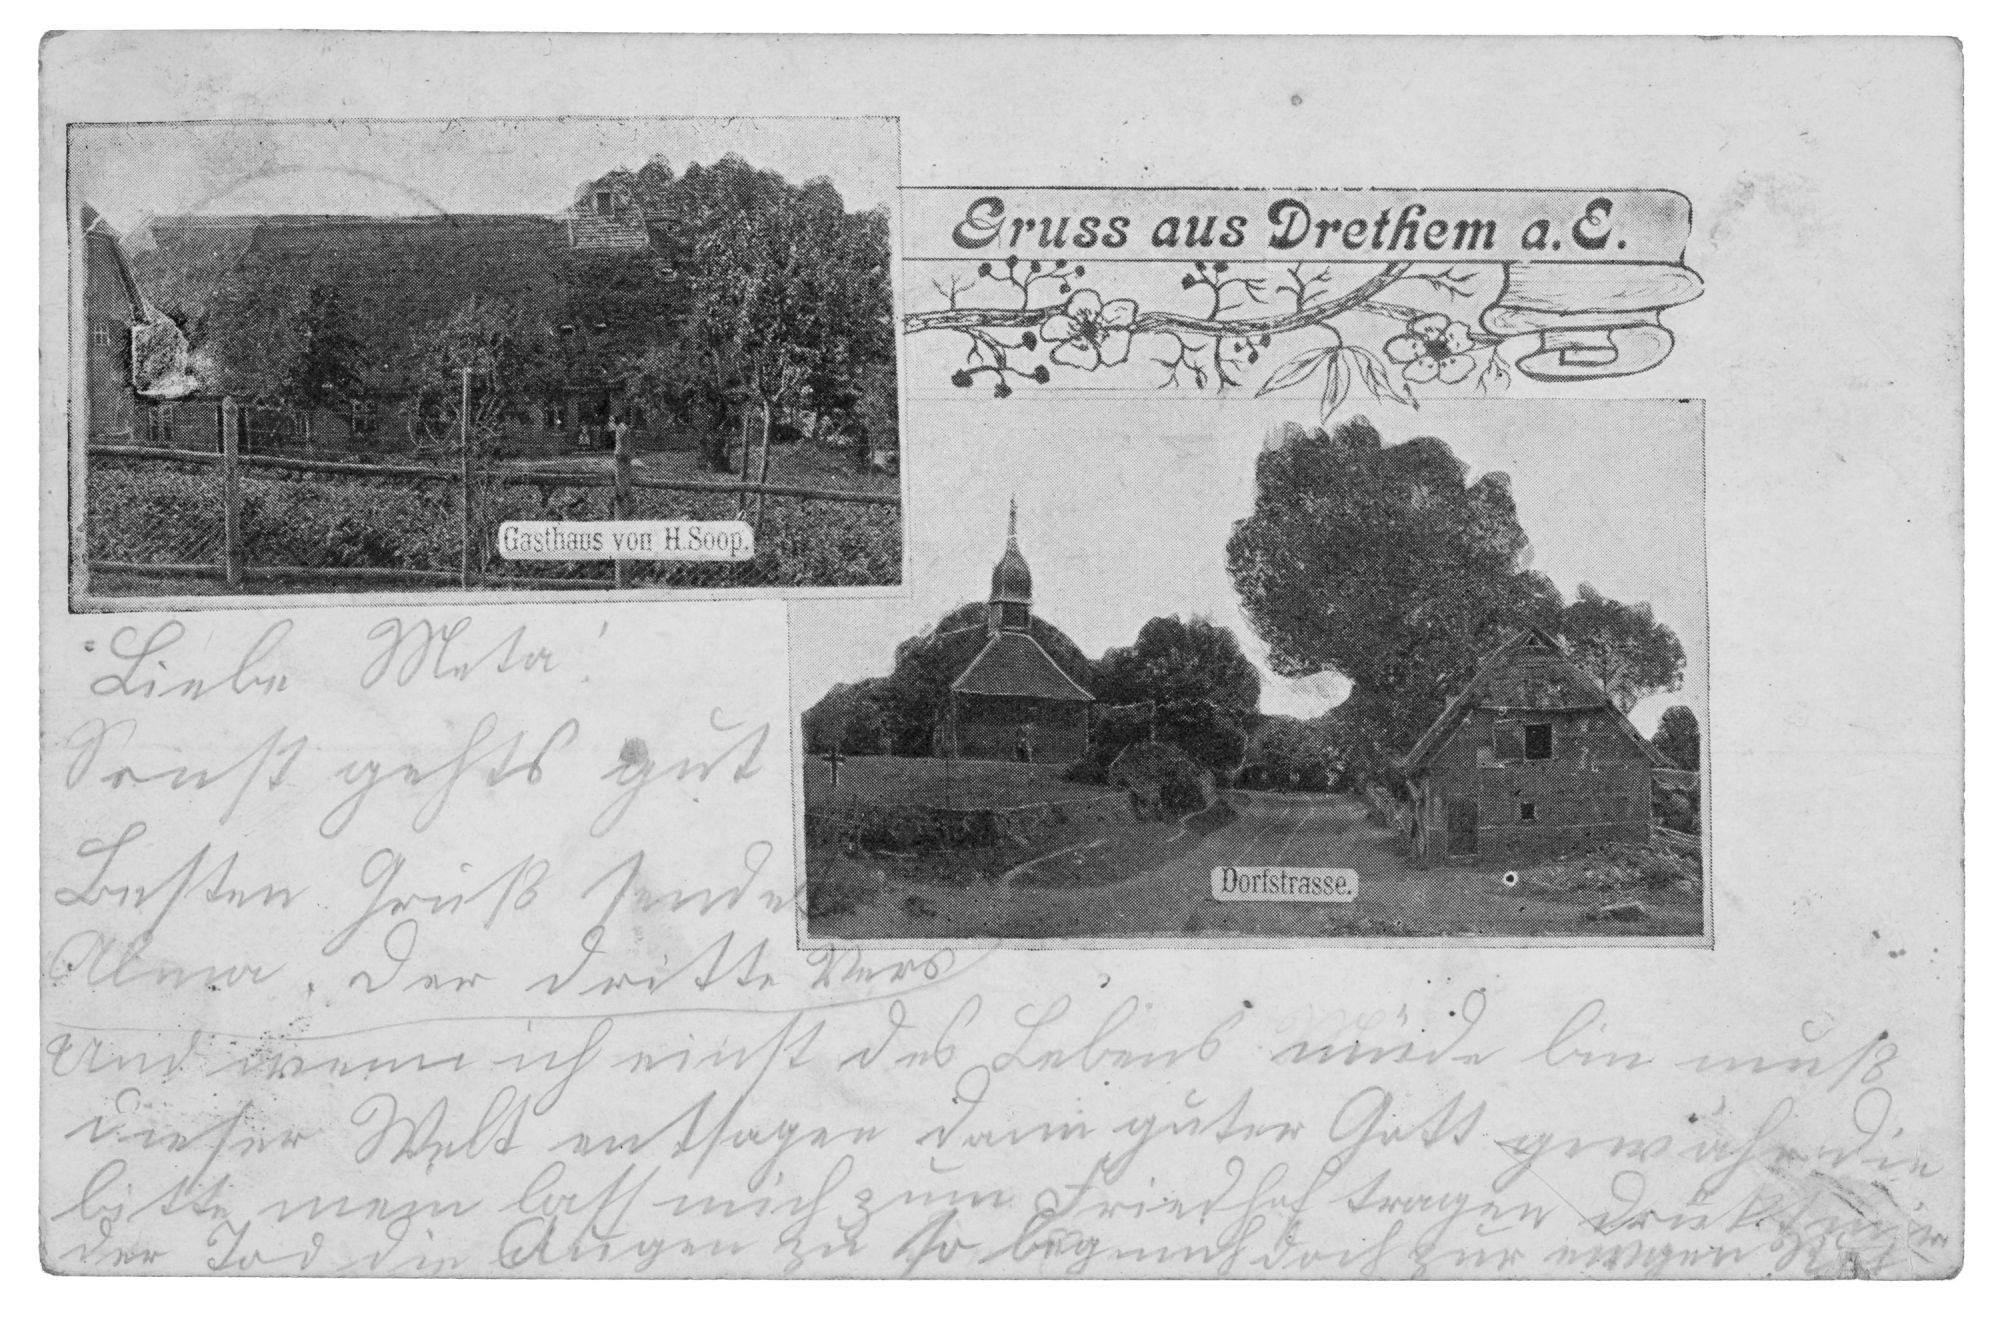 Gruss aus Drethem a.E.
Gasthaus von H. Soop.
Dorfstrasse.
Liebe Meta!
Sonst gehts gut
Besten Gruß sendet
Alma. Der dritte Vers
Und wenn ich einst des Lebens Müde bin muß
dieser Welt entsagen dann guter Gott gewähr die
bitte mein lass mich zum Friedhof tragen drükt
der Tod die Augen zu so legt mich doch zur ewgen Ruh